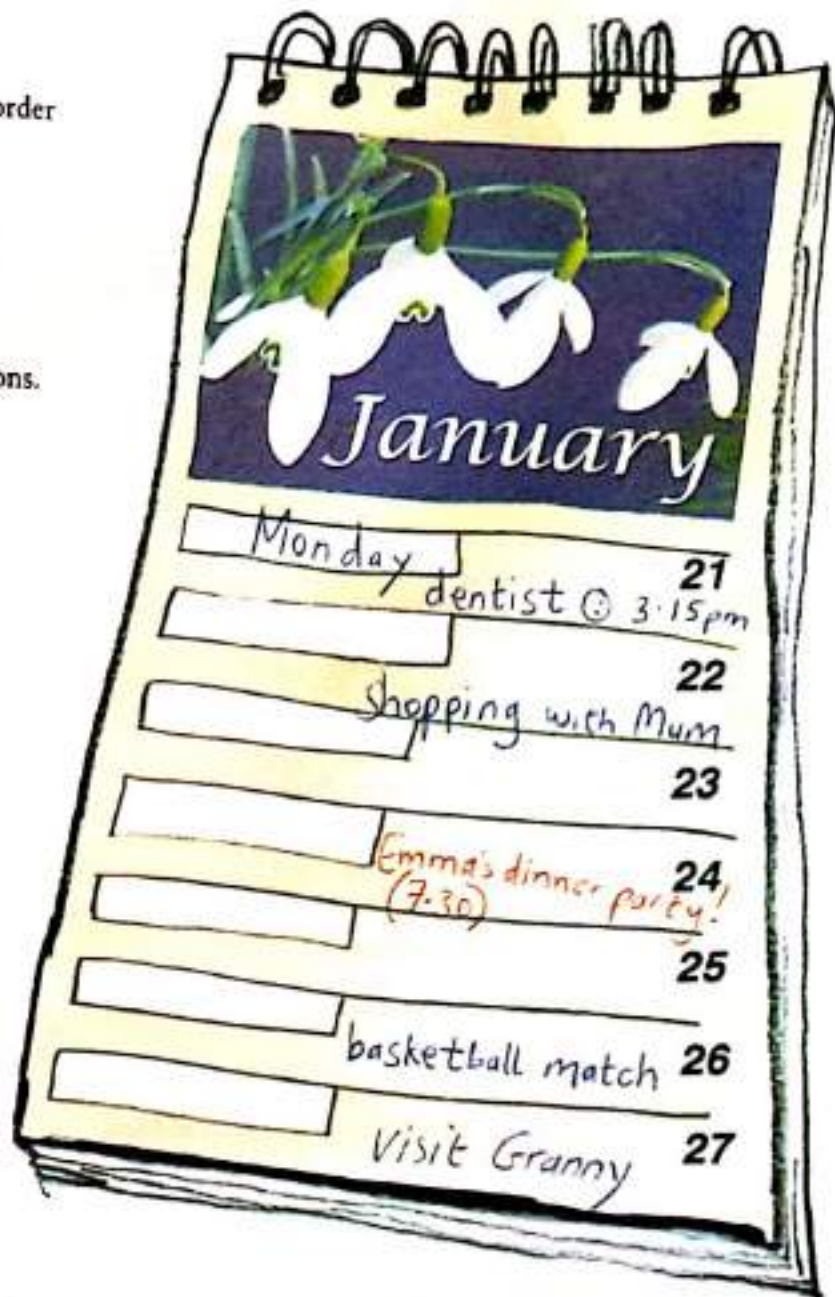 order
ons.
January
Monday
21
dentist @ 3.15pm
22
Shopping with Mum
23
24
Emma's dinner party!
(7.30)
25
basketball match 26
27
Visit Granny